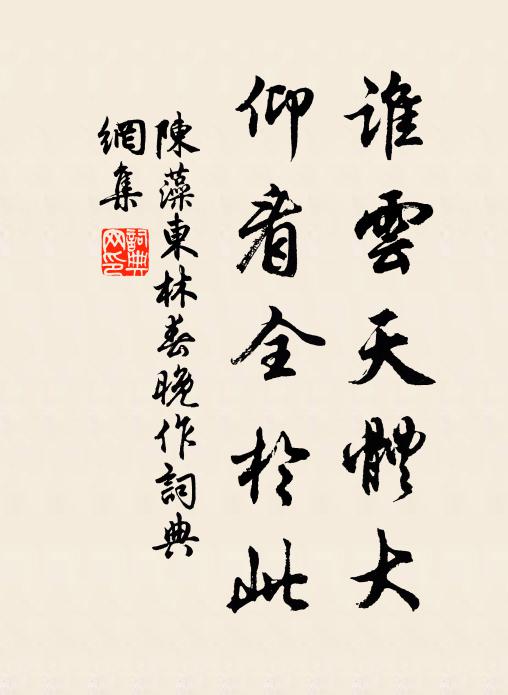 誰雲天體大
仰看全於此
陳藻東林春晚作詞典
網集
詞典
网印